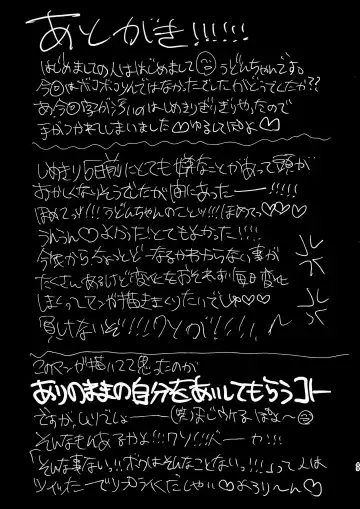 あとがき!!!!!!
はじめましての人ははじめまして うどんちゃんです。
今回はボコボコりんではなかったでしたがどうでしたか??
あ、今回字がきったないのはしめきりぎりぎりやったので
手がつかれてしまいました♡ゆるしてぽよ♡
しめきり6日前にとても嫌なことがあって頭が
おかしくなりそうでしたが間にあったーー!!!!!
ほめてッッ!!!うどんちゃんのことッッ!!!ほめてっ♡♡♡
うんうん♡よかったとてもよかった!!!!
今度からちょっとどーなるかわからない事が
たくさんあるけど変化をおそれず毎日変化
しまくってマンガ描きまくりたいでしゅ♡♡
負けないぞ!!!!クソが!!!!
このマンガ描いてて思ったのが
ありのままの自分をあいしてもらうコト
ですが、ムリでしょーー(笑)
そんなもんあるかよ!!!クソッッバーカ!!!
「そんな事ない!!!ボクはそんなことない!!!」って人は
ツイッターでリプライくだしゃい♡よろりーん♡
8